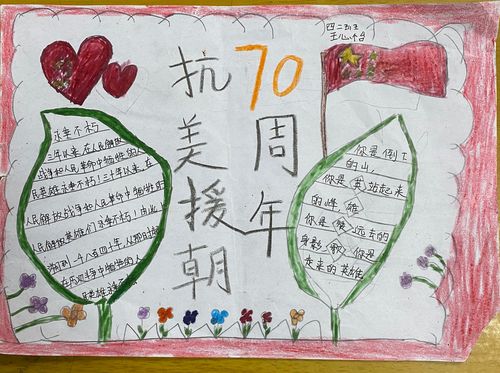 四二班
王心怡
70
抗美援朝
周年
永垂不朽
三年以来,在人民解放
战争和人民革命中牺牲的人
民英雄永垂不朽!三十年以来,在
人民解放战争和人民革命中牺牲的
人民英雄们永垂不朽!由此上
溯到一千八百四十年,从那时起
在历次斗争中牺牲的人
民英雄永垂不
你是倒下
的山,
你是英站起来
的峰,雄
你是赞远去的
身影,歌你是
走来的英雄